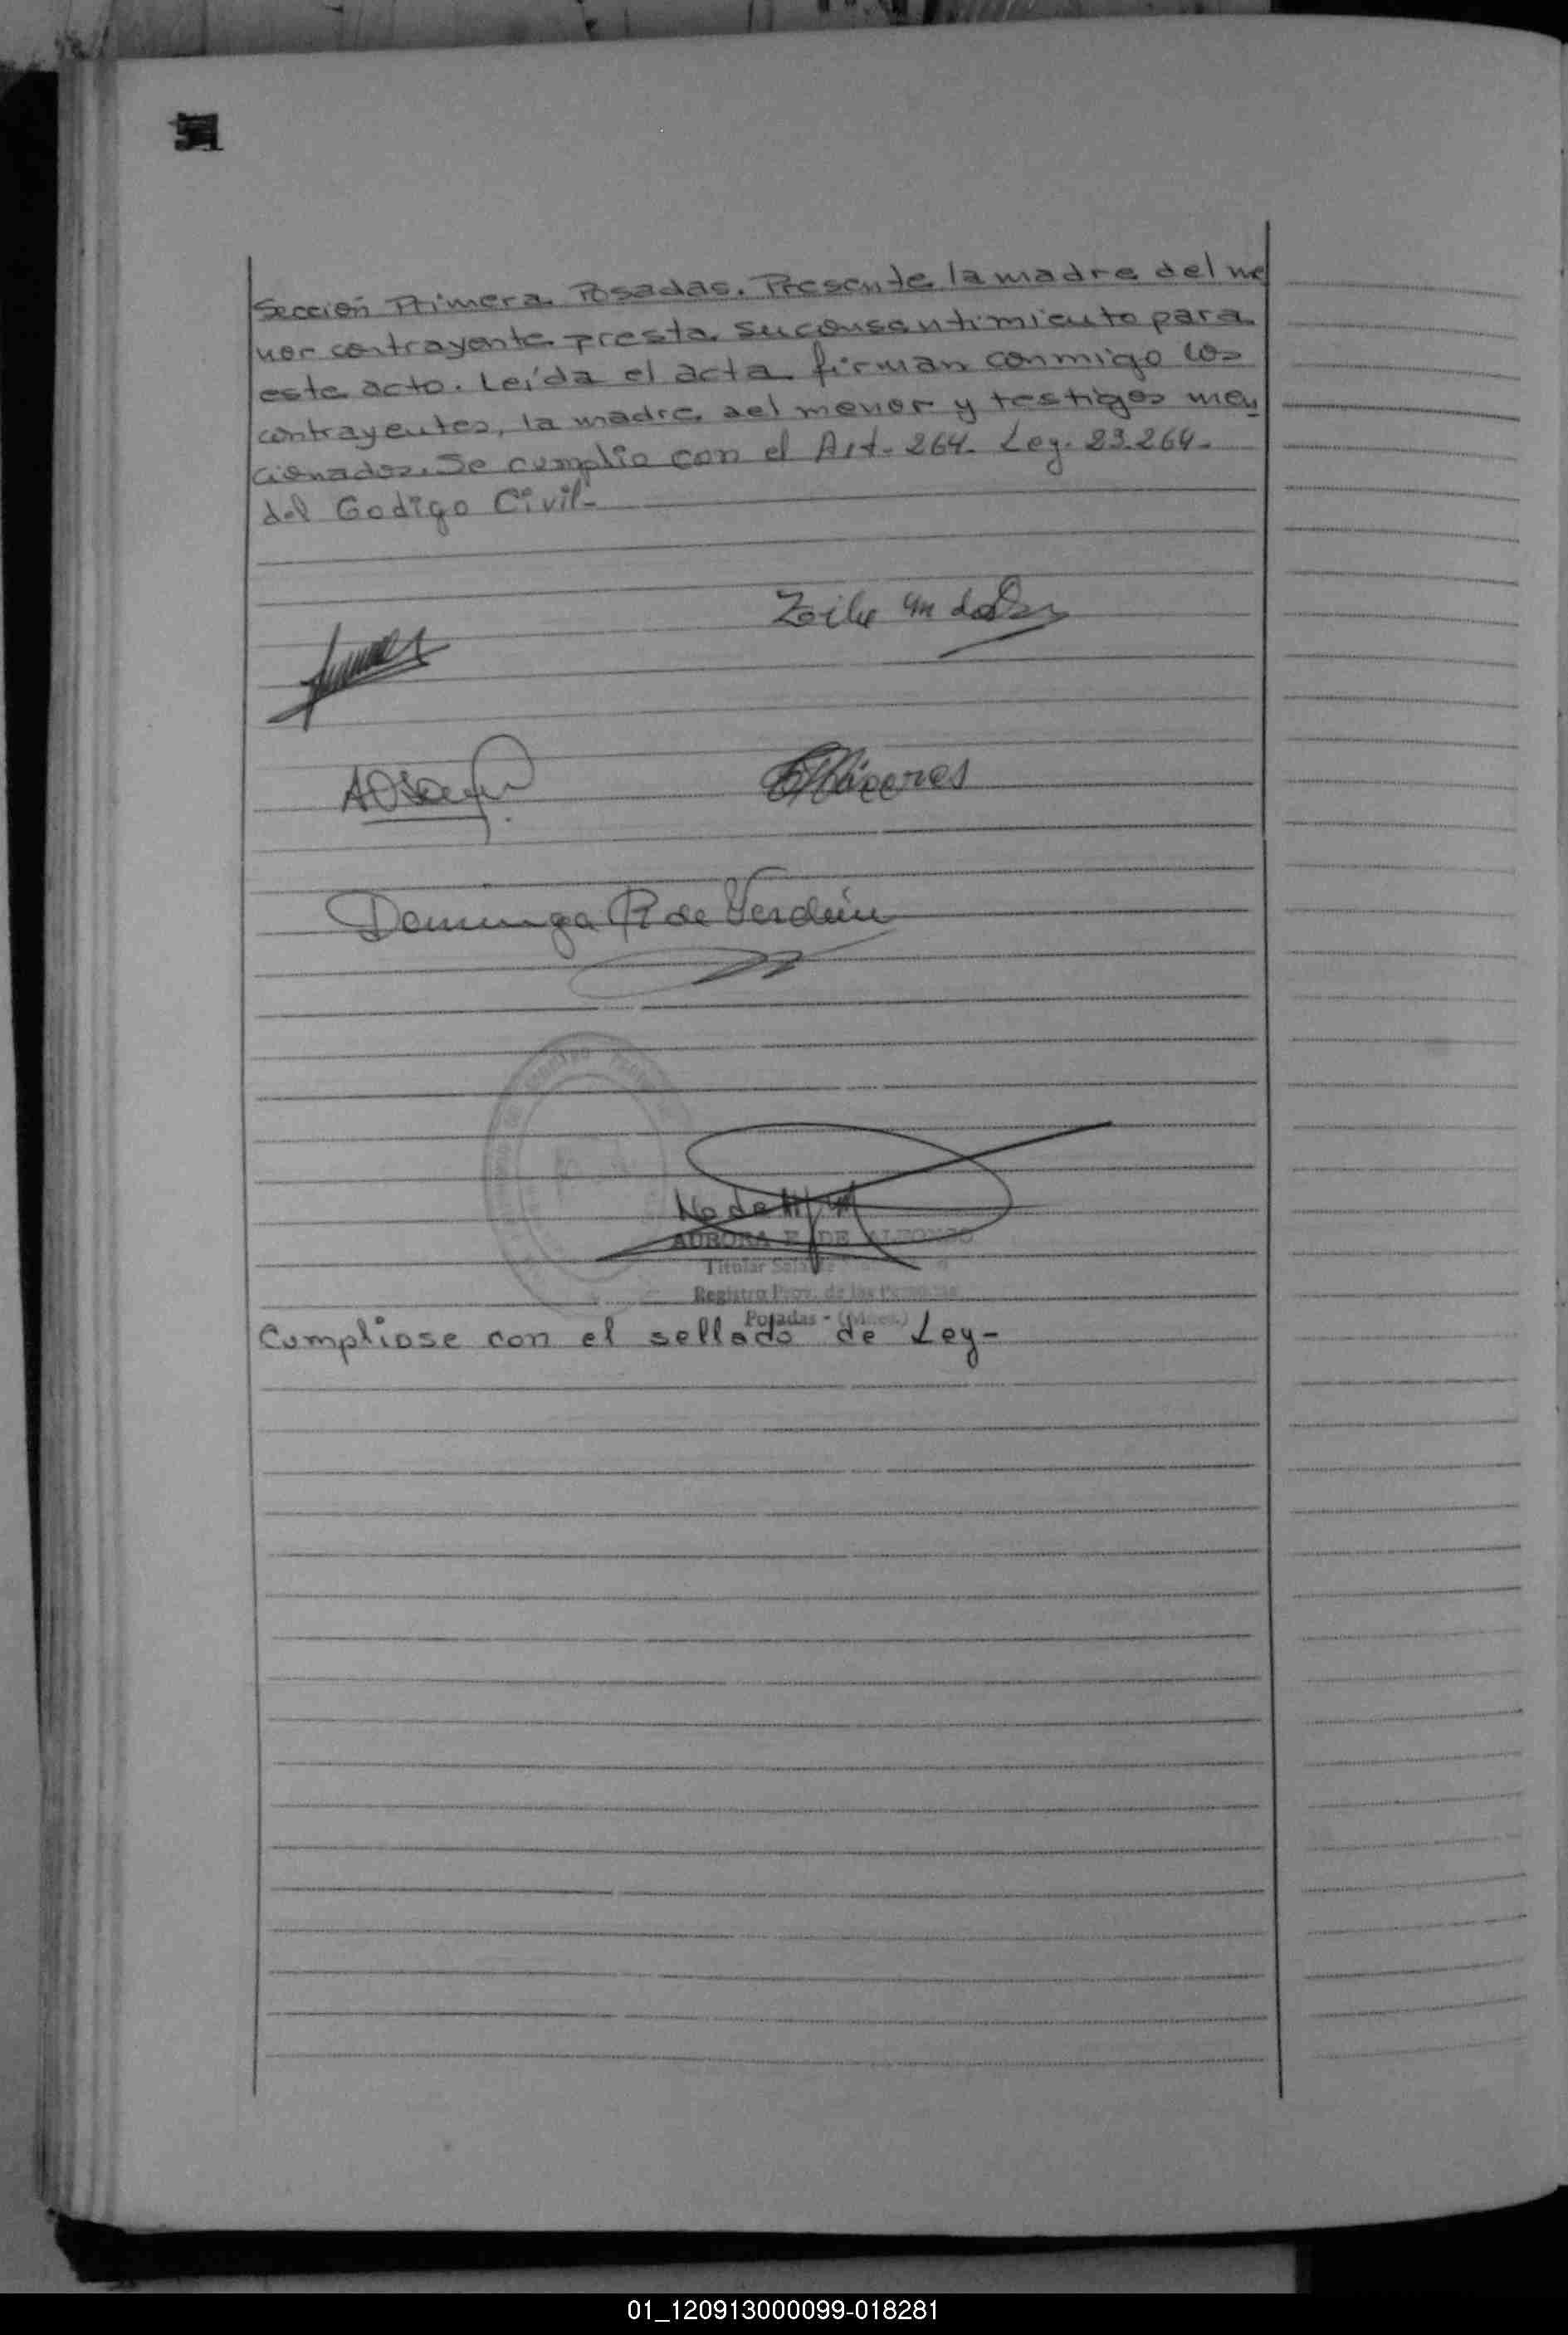 Sección Primera Posadas. Presente la madre del me
nor contrayente presta su consentimiento para
este acto. Leída el acta firman conmigo los
contrayentes, la madre del menor y testigos men
cionados. Se cumplio con el Art. 264. Ley. 23.264.
del Codigo Civil-
Zoile
Cáceres
Dominga R de Verdún
AURORA F. DE ALFONSO
Titular
Registro Prov. de las Personas
Posadas - (Mnes.)
Cumpliose con el sellado de Ley-
01_120913000099-018281